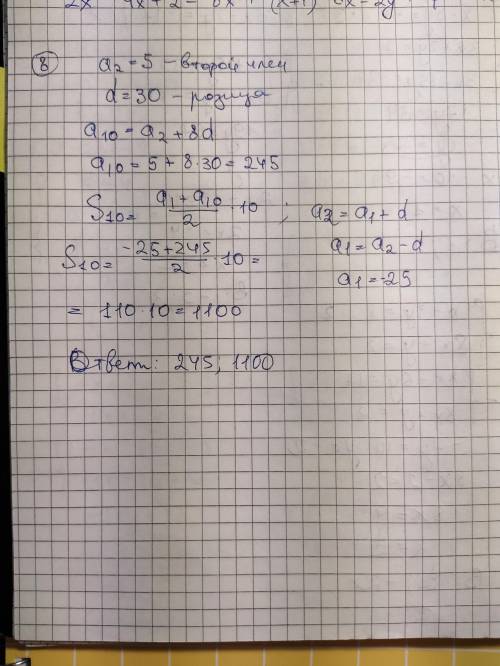 8
a₂ = 5 – второй член
d = 30 – розница
a₁₀ = a₂ + 8d
a₁₀ = 5 + 8·30 = 245
S₁₀ = (a₁ + a₁₀)/2 · 10 ; a₂ = a₁ + d
a₁ = a₂ – d
S₁₀ = (-25 + 245)/2 · 10 =
a₁ = -25
= 110·10 = 1100
Ответ: 245, 1100